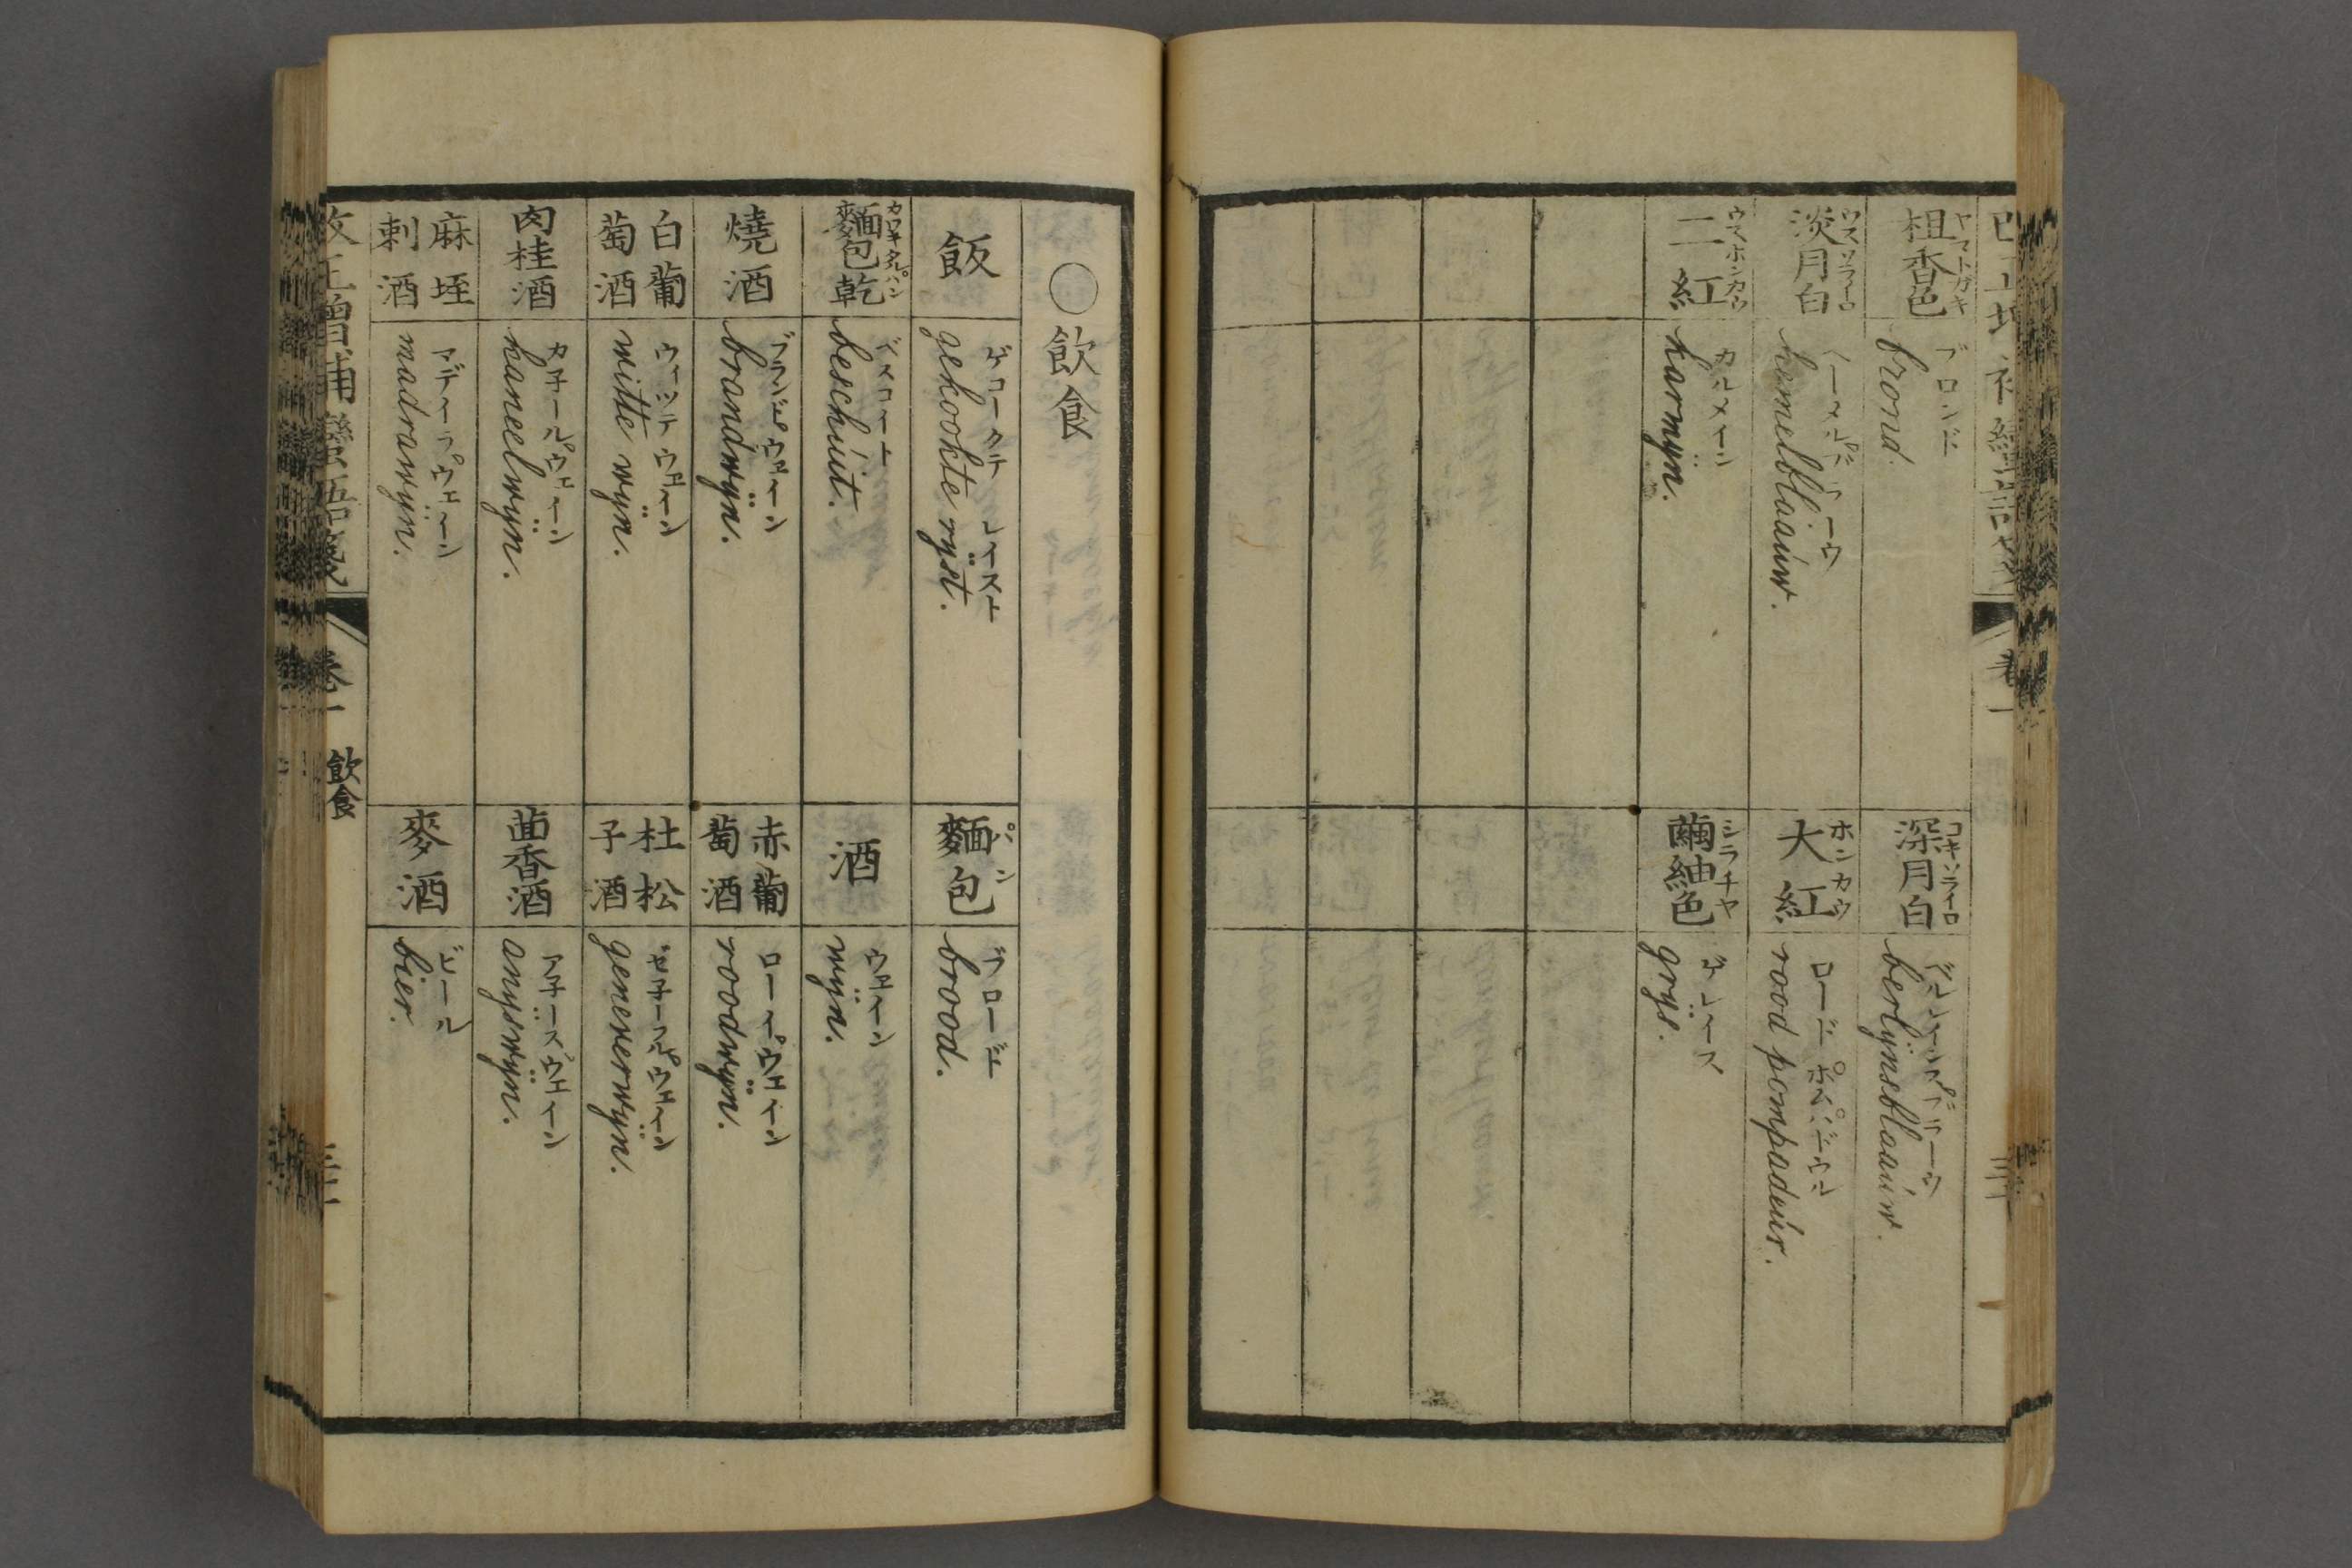 柤香色
ヤマトガキ
ブロンド
brond.
深月白
コキソライロ
ベルレインスブラーウ
berlÿnsblaauw.
淡月白
ウスソライロ
ヘーメルブラーウ
hemelblaauw.
大紅
ホンカウ
ロード ポムパドウル
rood pompadeúr.
二紅
ウスホンカウ
カルメイン
karmÿn.
繭紬色
シラチヤ
ゲレイス
grÿs.
○飲食
飯
ゲコークテ レイスト
gekookte rÿst.
麵包
パン
ブロード
brood.
麵包乾
カワキタルパン
ベスコイト
beschúit.
酒
ウェイン
wÿn.
燒酒
ブランドウェイン
brandwÿn.
赤葡萄酒
ローイウェイン
roodwÿn.
白葡萄酒
ウィッテ ウェイン
witte wÿn.
杜松子酒
ゼ子ーフルウェイン
genererwÿn.
肉桂酒
カ子ールウェイン
kaneelwÿn.
茴香酒
ア子ースウェイン
anÿswÿn.
麻垤剌酒
マデイラウェイン
madrawÿn.
麥酒
ビール
bier.
改正增補蠻語箋 卷一 飲食